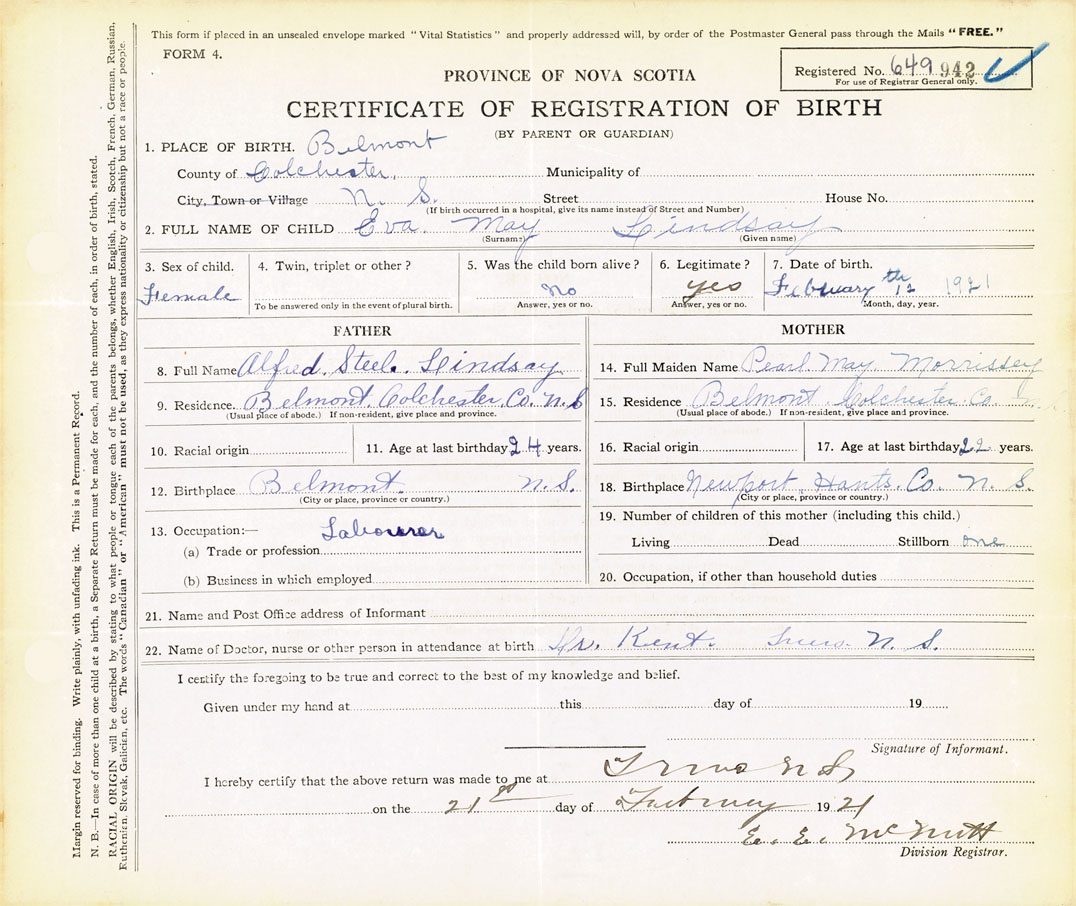 This form if placed in an unsealed envelope marked "Vital Statistics" and properly addressed will, by order of the Postmaster General pass through the Mails "FREE."
FORM 4.
Registered No. 649 942
For use of Registrar General only.
PROVINCE OF NOVA SCOTIA
CERTIFICATE OF REGISTRATION OF BIRTH
(BY PARENT OR GUARDIAN)
1. PLACE OF BIRTH. Belmont
County of Colchester. Municipality of
City, Town or Village N. S. Street House No.
(If birth occurred in a hospital, give its name instead of Street and Number)
2. FULL NAME OF CHILD Eva May Lindsay
(Surname) (Given name)
3. Sex of child. 4. Twin, triplet or other? 5. Was the child born alive? 6. Legitimate? 7. Date of birth.
Female No yes February 12th 1921
To be answered only in the event of plural birth. Answer, yes or no. Answer, yes or no. Month, day, year.
FATHER
8. Full Name Alfred. Steel. Lindsay
9. Residence. Belmont. Colchester. Co. N. S
(Usual place of abode.) If non-resident, give place and province.
10. Racial origin 11. Age at last birthday 24 years.
12. Birthplace Belmont. N. S.
(City or place, province or country.)
13. Occupation:— Labourer
(a) Trade or profession
(b) Business in which employed
MOTHER
14. Full Maiden Name Pearl May Morrissey
15. Residence Belmont Colchester Co
(Usual place of abode.) If non-resident, give place and province.
16. Racial origin 17. Age at last birthday 22 years.
18. Birthplace Newport, Hants. Co. N. S.
(City or place, province or country.)
19. Number of children of this mother (including this child.)
Living Dead Stillborn one
20. Occupation, if other than household duties
21. Name and Post Office address of Informant
22. Name of Doctor, nurse or other person in attendance at birth Dr. Kent. Truro. N. S.
I certify the foregoing to be true and correct to the best of my knowledge and belief.
Given under my hand at this day of 19
Signature of Informant.
I hereby certify that the above return was made to me at Truro N S
on the 21 day of February 19 21
E. E. McNutt
Division Registrar.
Margin reserved for binding. Write plainly, with unfading ink. This is a Permanent Record.
N. B.—In case of more than one child at a birth, a Separate Return must be made for each, and the number of each, in order of birth, stated.
RACIAL ORIGIN will be described by stating to what people or tongue each of the parents belongs, whether English, Irish, Scotch, French, German, Russian,
Ruthenian, Slovak, Galician, etc. The words "Canadian" or "American" must not be used, as they express nationality or citizenship but not a race or people.